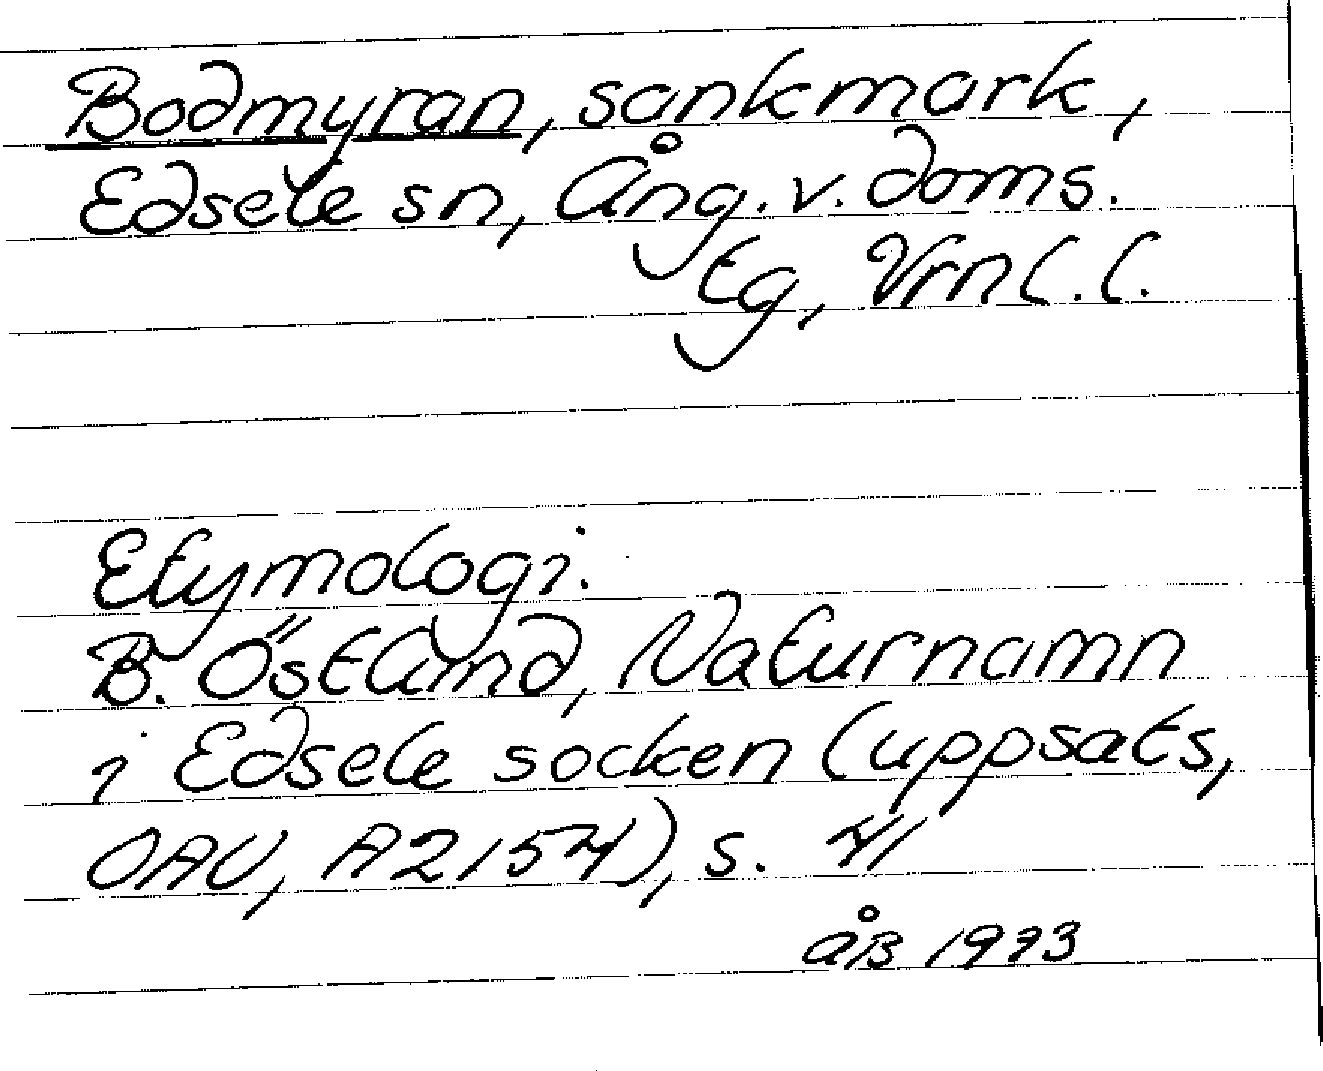 Bodmyran, sankmark,
Edsele sn, Ång. v. doms.
tg, Vrnl. l.
Etymologi:
B. Östlund, Naturnamn
i Edsele socken (uppsats,
OAU, A2154), s. 41
åB 1973